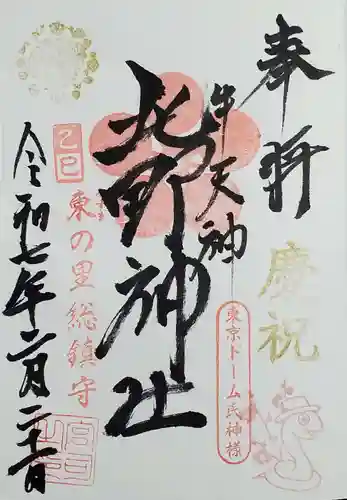 奉拝
慶祝
牛天神
東京ドーム氏神様
北野神社
乙巳
東の里総鎮守
令和七年六月二十一日